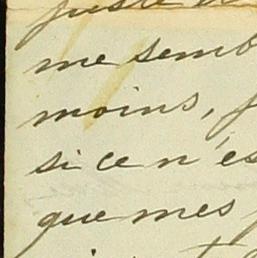 juste
me semb
moins,
si ce n'es
que mes